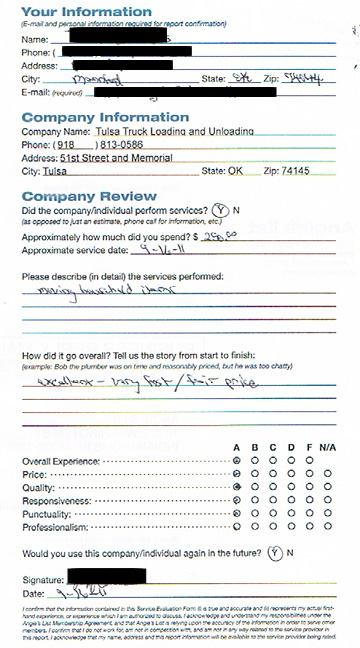 Your Information
(E-mail and personal information required for report confirmation)
Name:
Phone: (
Address:
City: State: OK Zip:
E-mail: (required)
Company Information
Company Name: Tulsa Truck Loading and Unloading
Phone: (918 ) 813-0586
Address: 51st Street and Memorial
City: Tulsa State: OK Zip: 74145
Company Review
Did the company/individual perform services? Y N
(as opposed to just an estimate, phone call for information, etc.)
Approximately how much did you spend? $
Approximate service date: 9-16-11
Please describe (in detail) the services performed:
moving household items
How did it go overall? Tell us the story from start to finish:
(example: Bob the plumber was on time and reasonably priced, but he was too chatty)
excellent - very fast / fair price
A B C D F N/A
Overall Experience:
Price:
Quality:
Responsiveness:
Punctuality:
Professionalism:
Would you use this company/individual again in the future? Y N
Signature:
Date:
I confirm that the information contained in this Service Evaluation Form (i) is true and accurate and (ii) represents my actual first-
hand experience, or experience which I am authorized to discuss. I acknowledge and understand my responsibilities under the
Angie's List Membership Agreement, and that Angie's List is relying upon the accuracy of the information in order to serve other
members. I confirm that I do not work for, am not in competition with, and am not in any way related to the service provider in
this report. I acknowledge that my name, address and this report information will be available to the service provider being rated.